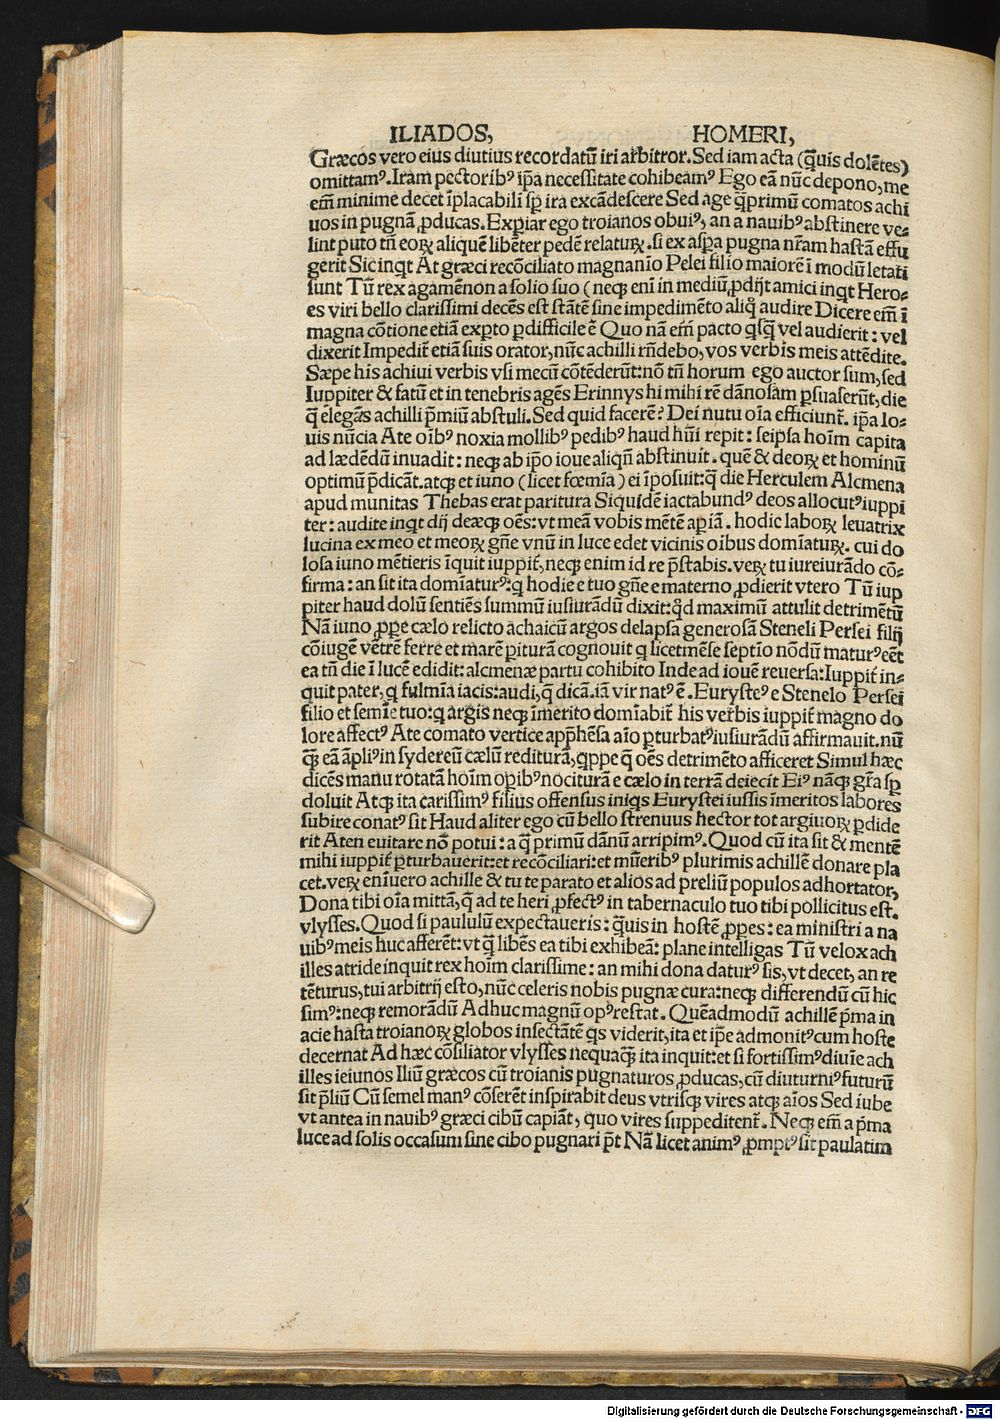 ILIADOS, HOMERI,
Græcos vero eius diutius recordatū iri arbitror. Sed iam acta (q̄uis dolētes)
omittamꝰ. Iram pectoribꝰ ip̄a necessitate cohibeamꝰ Ego eā nūc depono, me
em̄ minime decet īplacabili sp̄ ira excādescere Sed age q̄primū comatos achi
uos in pugnā ꝓducas. Expiar ego troianos obuiꝰ, an a nauibꝰ abstinere ve⸗
lint puto tn̄ eoꝝ aliquē libēter pedē relatuꝝ. si ex asꝑa pugna nr̄am hastā effu
gerit Sic inqt At græci recōciliato magnanīo Pelei filīo maiorē ī modū letati
sunt Tū rex agamēnon a solio suo (neqꝫ enī in mediū, ꝓdijt amici inqt Hero⸗
es viri bello clarissimi decēs est stātē sine impedimēto aliq̄ audire Dicere em̄ ī
magna cōtione etiā exꝑto ꝑdifficile ē Quo nā em̄ pacto qsq̄ vel audierit: vel
dixerit Impedit̄ etiā suis orator, nūc achilli rn̄debo, vos verbis meis attēdite.
Sæpe his achiui verbis vsi mecū cōtēderūt: nō tn̄ horum ego auctor sum, sed
Iuppiter & fatū et in tenebris agēs Erinnys hi mihi rē dānosam ꝑsuaserūt, die
q̄ ēlegās achilli p̄miū abstuli. Sed quid facerē? Dei nutu oīa efficiunt̄. ip̄a Io⸗
uis nūcia Ate oībꝰ noxia mollibꝰ pedibꝰ haud hūi repit: seip̄sa hoīm capita
ad lædēdū inuadit: neqꝫ ab ip̄o ioue aliqn̄ abstinuit. quē & deoꝝ et hominū
optimū p̄dicāt. atqꝫ et iuno (licet fœmīa) ei īposuit: q̄ die Herculem Alcmena
apud munitas Thebas erat paritura Siquidē iactabundꝰ deos allocutꝰ iuppi
ter: audite inqt dij deæqꝫ oēs: vt meā vobis mētē apīā. hodie laboꝝ leuatrix
lucina ex meo et meoꝝ gn̄e vnū in luce edet vicinis oibus domīatuꝝ. cui do
losa iuno mētieris īquit iuppit̄, neqꝫ enim id re p̄stabis. veꝝ tu iureiurādo cō⸗
firma: an sit ita domīaturꝰ: q hodie e tuo gn̄e e materno ꝓdierit vtero Tū iup
piter haud dolū sentiēs summū iusiurādū dixit: qd̄ maximū attulit detrimētū
Nā iuno ꝓpe cælo relicto achaicū argos delapsa generosā Steneli Persei filij
cōiugē vētrē ferre et marē ꝑiturā cognouit q licet mēse septīo nōdū maturꝰ eēt
ea tn̄ die ī lucē edidit: alcmenæ partu cohibito Inde ad iouē reuersa: Iuppit̄ in⸗
quit pater, q fulmīa iacis: audi, q̄ dicā. iā vir natꝰ ē. Eurysteꝰ e Stenelo Persei
filio et semīe tuo: q argis neqꝫ īmerito domīabit̄ his verbis iuppit̄ magno do
lore affectꝰ Ate comato vertice apprhēsa aīo ꝑturbatꝰ iusiurādū affirmauit. nū
q̄ꝫ eā āpliꝰ in sydereū cælū rediturā, qppe q̄ oēs detrimēto afficeret Simul hæc
dicēs manu rotatā hoīm opibꝰ nociturā e cælo in terrā deiecit Eiꝰ nāqꝫ gr̄a sp̄
doluit Atqꝫ ita carissimꝰ filius offensus iniqs Eurystei iussis īmeritos labores
subire conatꝰ sit Haud aliter ego cū bello strenuus hector tot argiuoꝝ ꝑdide
rit Aten euitare nō potui: a q̄ primū dānū arripimꝰ. Quod cū ita sit & mentē
mihi iuppit̄ ꝑturbauerit: et recōciliari: et mūeribꝰ plurimis achillē donare pla
cet. veꝝ enīuero achille & tu te parato et alios ad preliū populos adhortator,
Dona tibi oīa mittā, q̄ ad te heri ꝓfectꝰ in tabernaculo tuo tibi pollicitus est.
vlysses. Quod si paululū expectaueris: q̄uis in hostē ꝓpes: ea ministri a na
uibꝰ meis huc afferēt: vt q̄ libēs ea tibi exhibeā: plane intelligas Tū velox ach
illes atride inquit rex hoīm clarissime: an mihi dona daturꝰ sis, vt decet, an re
tēturus, tui arbitrij esto, nūc celeris nobis pugnæ cura: neqꝫ differendū cū hic
simꝰ: neqꝫ remorādū Adhuc magnū opꝰ restat. Quēadmodū achillē p̄ma in
acie hasta troianoꝝ globos insectātē qs viderit, ita et ip̄e admonitꝰ cum hoste
decernat Ad hæc cōsiliator vlysses nequaq̄ꝫ ita inquit: et si fortissimꝰ diuīe ach
illes ieiunos Iliū græcos cū troianis pugnaturos ꝓducas, cū diuturniꝰ futurū
sit p̄liū Cū semel manꝰ cōserēt inspirabit deus vtrisqꝫ vires atqꝫ aīos Sed iube
vt antea in nauibꝰ græci cibū capiāt, quo vires suppeditent̄. Neqꝫ em̄ a p̄ma
luce ad solis occasum sine cibo pugnari p̄t Nā licet animꝰ ꝓmptꝰ sit paulatim
Digitalisierung gefördert durch die Deutsche Forschungsgemeinschaft - DFG